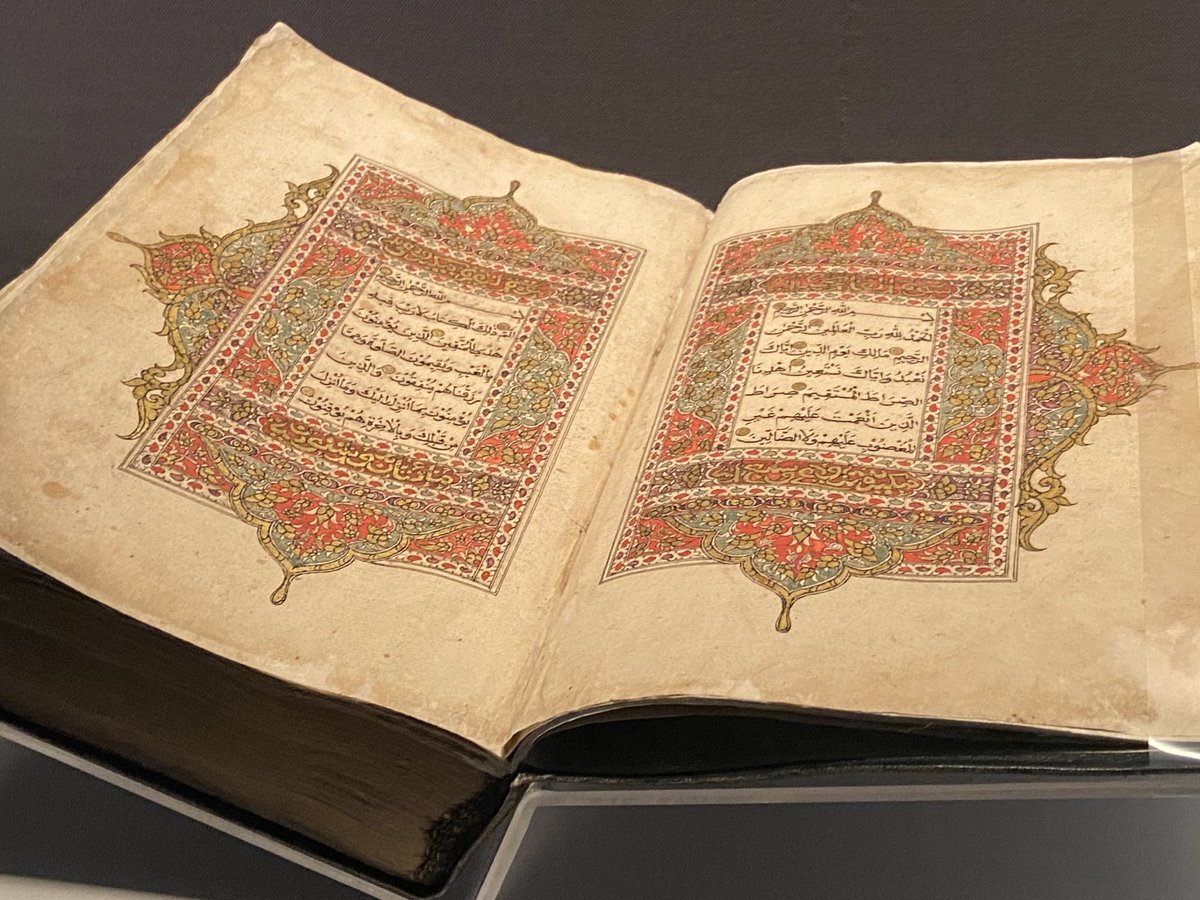 بسم الله الرحمن الرحيم
الحمد لله رب العلمين الرحمن
الرحيم مالك يوم الدين اياك
نعبد واياك نستعين اهدنا
الصراط المستقيم صراط
الذين انعمت عليهم غير
المغضوب عليهم ولا الضالين
بسم الله الرحمن الرحيم
الم ذلك الكتاب لا ريب فيه
هدى للمتقين الذين يؤمنون
بالغيب ويقيمون الصلوة ومما
رزقناهم ينفقون والذين
يؤمنون بما انزل اليك وما انزل
من قبلك وبالاخرة هم يوقنون